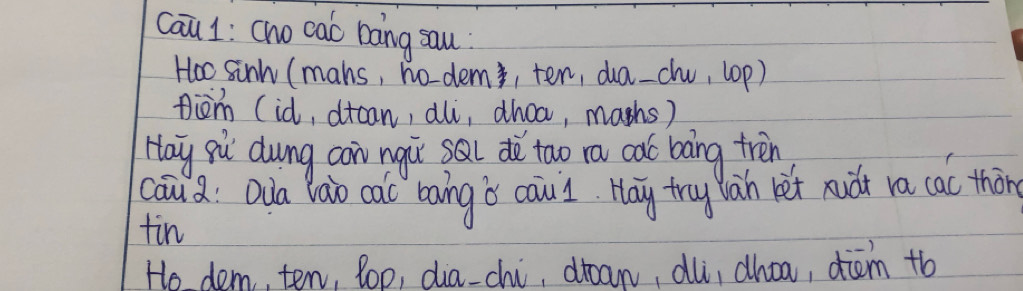 Câu 1: Cho các bảng sau:
Học sinh (mahs, ho_dem, ten, dia_chi, lop)
Điểm (id, dtoan, dli, dhoa, mahs)
Hãy sử dụng câu ngữ SQL để tạo ra các bảng trên
Câu 2: Dựa vào các bảng ở câu 1. Hãy truy vấn kết xuất ra các thông
tin
Ho_dem, ten, lop, dia_chi, dtoan, dli, dhoa, điểm tb